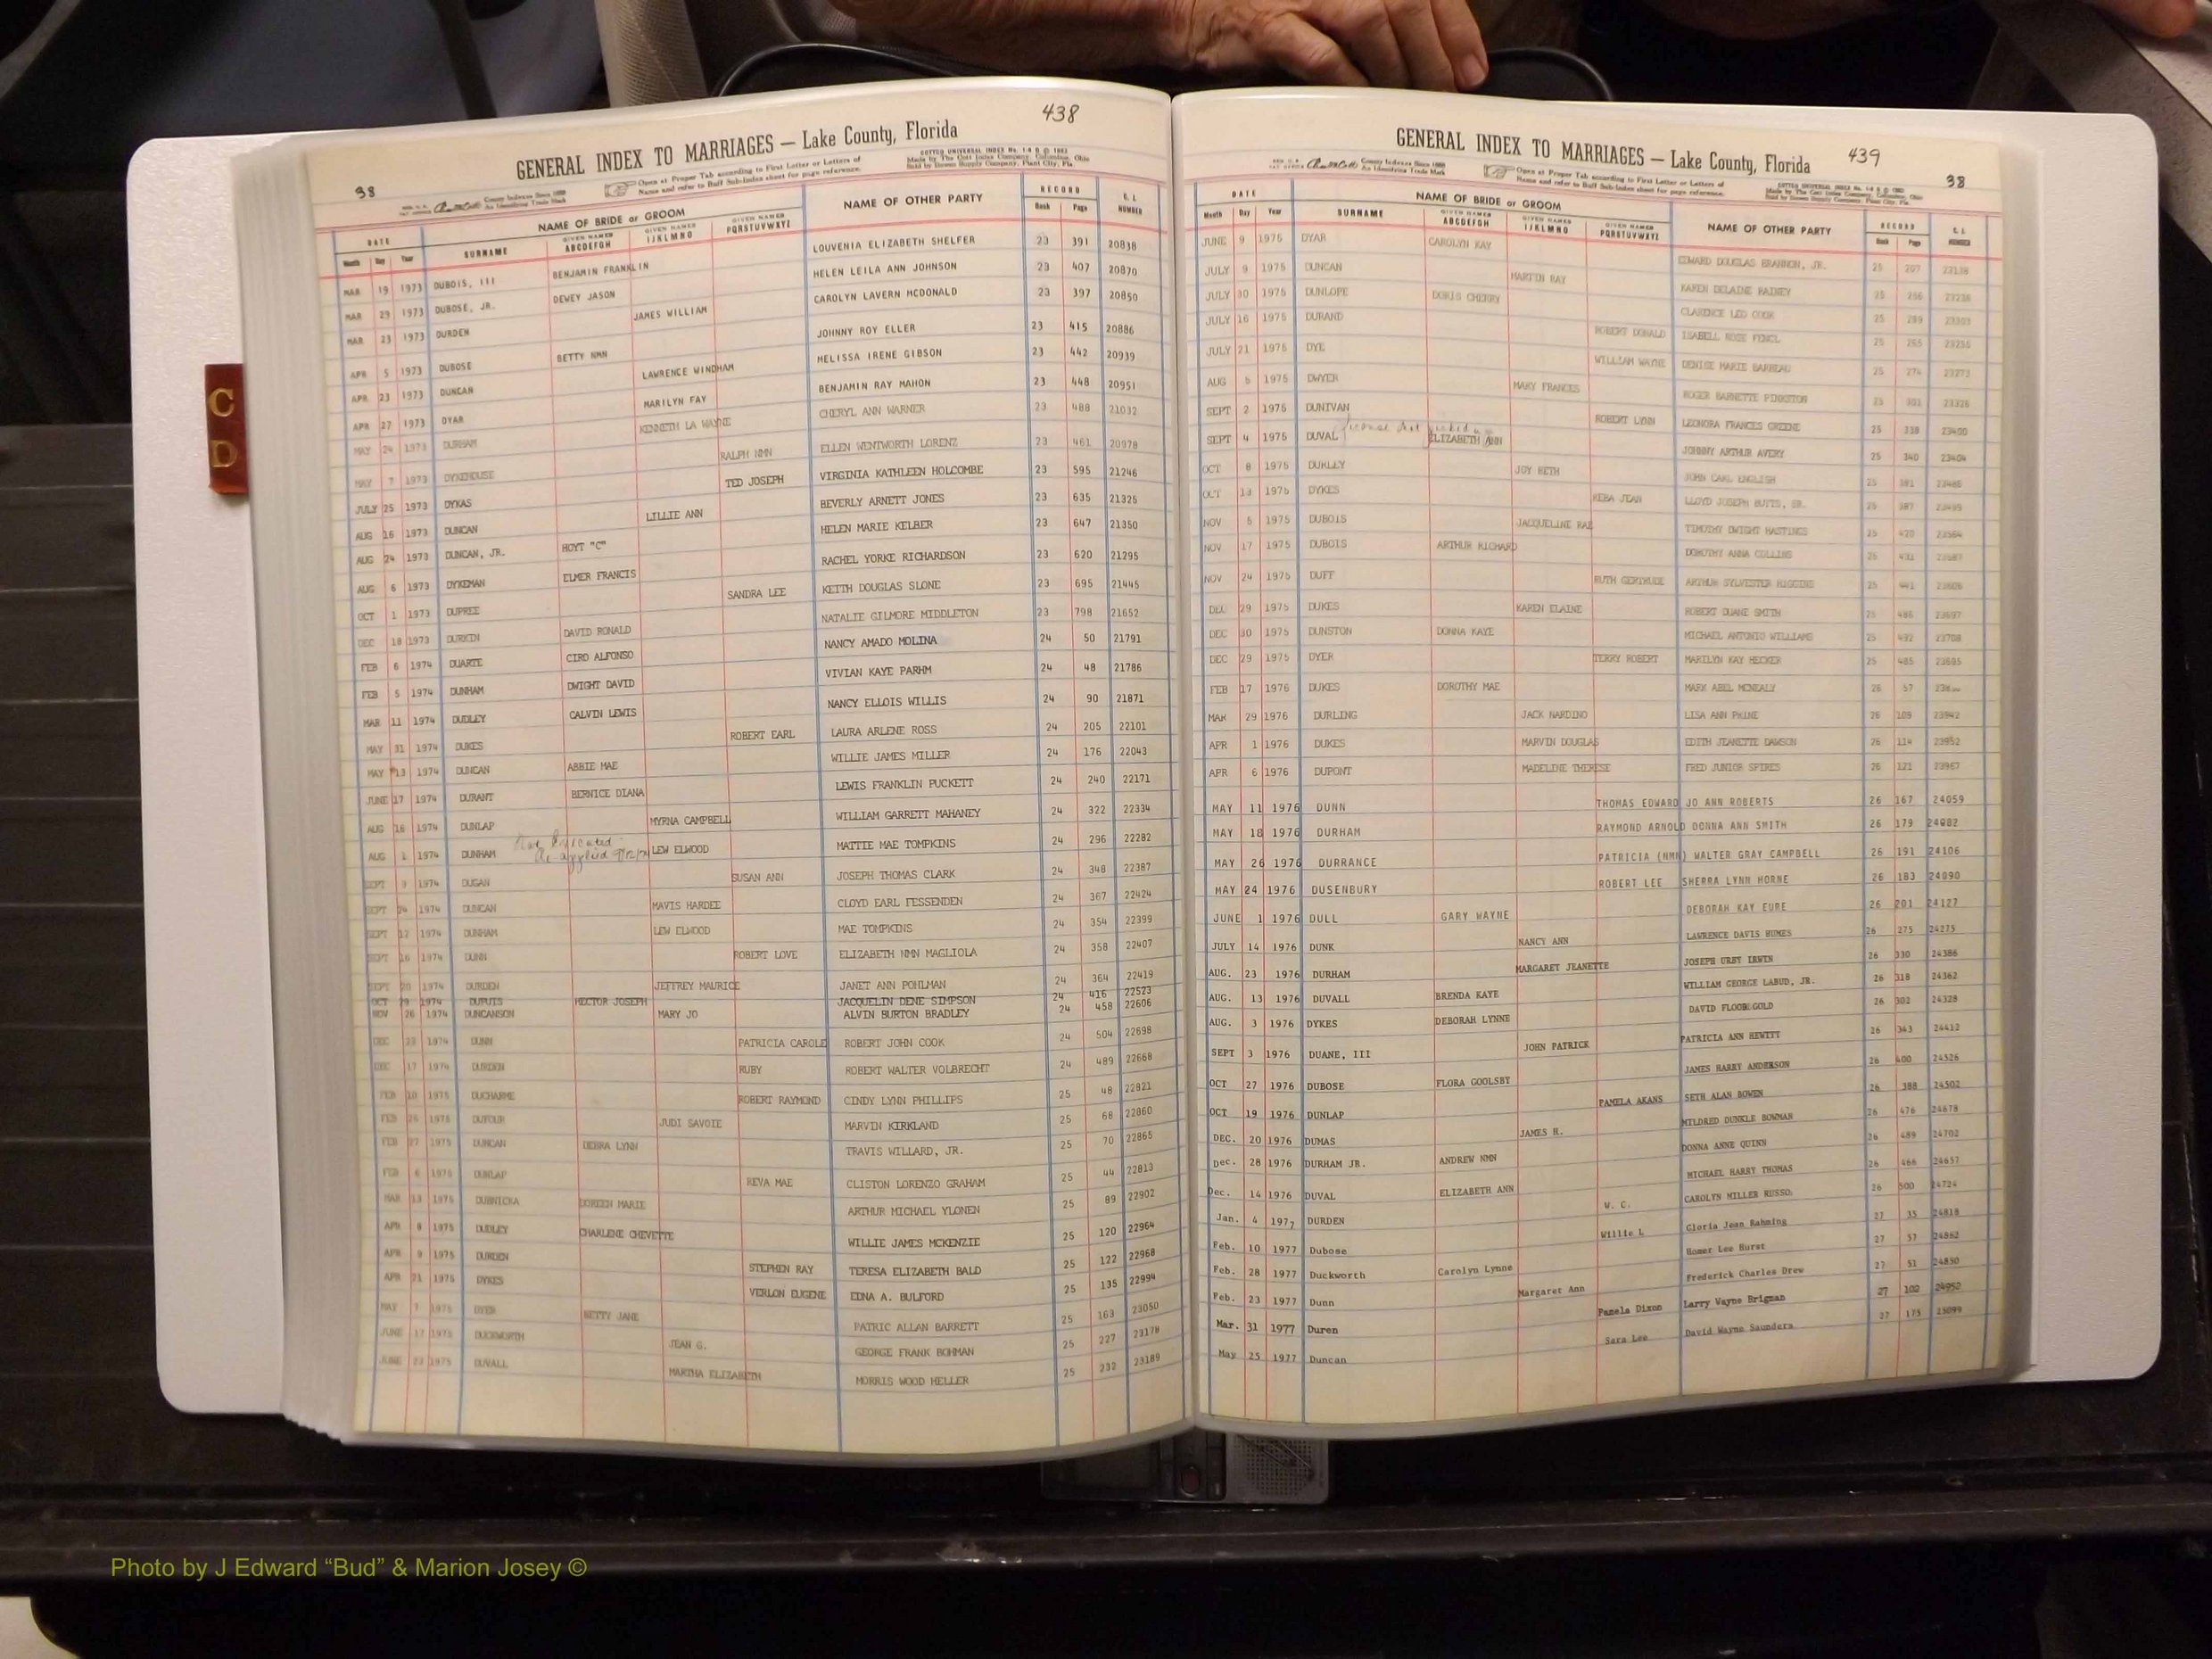 438
GENERAL INDEX TO MARRIAGES — Lake County, Florida
38
County Indexes Since 1888
An Identifying Trade Mark
Open at Proper Tab according to First Letter or Letters of
Name and refer to Buff Sub-Index sheet for page reference.
COTT'S UNIVERSAL INDEX
Made by The Cott Index Company, Columbus, Ohio
Sold by Bowen Supply Company, Plant City, Fla.
DATE NAME OF BRIDE or GROOM NAME OF OTHER PARTY RECORD C. L. NUMBER
Month Day Year SURNAME GIVEN NAMES ABCDEFGH GIVEN NAMES IJKLMNO GIVEN NAMES PQRSTUVWXYZ Book Page
MAR 19 1973 DUBOIS, III BENJAMIN FRANKLIN LOUVENIA ELIZABETH SHELFER 23 391 20838
MAR 29 1973 DUBOSE, JR. DEWEY JASON HELEN LEILA ANN JOHNSON 23 407 20870
MAR 23 1973 DURDEN JAMES WILLIAM CAROLYN LAVERN MCDONALD 23 397 20850
APR 5 1973 DUBOSE BETTY NMN JOHNNY ROY ELLER 23 415 20886
APR 23 1973 DUNCAN LAWRENCE WINDHAM MELISSA IRENE GIBSON 23 442 20939
APR 27 1973 DYAR MARILYN FAY BENJAMIN RAY MAHON 23 448 20951
MAY 24 1973 DURHAM KENNETH LA WAYNE CHERYL ANN WARNER 23 488 21032
MAY 7 1973 DYKEHOUSE RALPH NMN ELLEN WENTWORTH LORENZ 23 461 20978
JULY 25 1973 DYKAS TED JOSEPH VIRGINIA KATHLEEN HOLCOMBE 23 595 21246
AUG 16 1973 DUNCAN LILLIE ANN BEVERLY ARNETT JONES 23 635 21325
AUG 24 1973 DUNCAN, JR. HOYT "C" HELEN MARIE KELBER 23 647 21350
AUG 6 1973 DYKEMAN ELMER FRANCIS RACHEL YORKE RICHARDSON 23 620 21295
OCT 1 1973 DUPREE SANDRA LEE KEITH DOUGLAS SLONE 23 695 21445
DEC 18 1973 DURKIN DAVID RONALD NATALIE GILMORE MIDDLETON 23 798 21652
FEB 6 1974 DUARTE CIRO ALFONSO NANCY AMADO MOLINA 24 50 21791
FEB 5 1974 DUNHAM DWIGHT DAVID VIVIAN KAYE PARHM 24 48 21786
MAR 11 1974 DUDLEY CALVIN LEWIS NANCY ELLOIS WILLIS 24 90 21871
MAY 31 1974 DUKES ROBERT EARL LAURA ARLENE ROSS 24 205 22101
MAY 13 1974 DUNCAN ABBIE MAE WILLIE JAMES MILLER 24 176 22043
JUNE 17 1974 DURANT BERNICE DIANA LEWIS FRANKLIN PUCKETT 24 240 22171
AUG 16 1974 DUNLAP MYRNA CAMPBELL WILLIAM GARRETT MAHANEY 24 322 22334
AUG 1 1974 DUNHAM Re applied LEW ELWOOD MATTIE MAE TOMPKINS 24 296 22282
SEPT 9 1974 DUGAN SUSAN ANN JOSEPH THOMAS CLARK 24 348 22387
SEPT 24 1974 DUNCAN MAVIS HARDEE CLOYD EARL FESSENDEN 24 367 22424
SEPT 17 1974 DUNHAM LEW ELWOOD MAE TOMPKINS 24 354 22399
SEPT 16 1974 DUNN ROBERT LOVE ELIZABETH NMN MAGLIOLA 24 358 22407
SEPT 20 1974 DURDEN JEFFREY MAURICE JANET ANN POHLMAN 24 364 22419
OCT 29 1974 DUPUIS HECTOR JOSEPH JACQUELIN DENE SIMPSON 24 416 22523
NOV 26 1974 DUNCANSON MARY JO ALVIN BURTON BRADLEY 24 458 22606
DEC 23 1974 DUNN PATRICIA CAROLE ROBERT JOHN COOK 24 504 22698
DEC 17 1974 DURDEN RUBY ROBERT WALTER VOLBRECHT 24 489 22668
FEB 10 1975 DUCHARME ROBERT RAYMOND CINDY LYNN PHILLIPS 25 48 22821
FEB 25 1975 DUFOUR JUDI SAVOIE MARVIN KIRKLAND 25 68 22860
FEB 27 1975 DUNCAN DEBRA LYNN TRAVIS WILLARD, JR. 25 70 22865
FEB 6 1975 DUNLAP REVA MAE CLISTON LORENZO GRAHAM 25 44 22813
MAR 13 1975 DUBNICKA DOREEN MARIE ARTHUR MICHAEL YLONEN 25 89 22902
APR 8 1975 DUDLEY CHARLENE CHEVETTE WILLIE JAMES MCKENZIE 25 120 22964
APR 9 1975 DURDEN STEPHEN RAY TERESA ELIZABETH BALD 25 122 22968
APR 21 1975 DYKES VERLON EUGENE EDNA A. BULFORD 25 135 22994
MAY 7 1975 DYER BETTY JANE PATRIC ALLAN BARRETT 25 163 23050
JUNE 17 1975 DUCKWORTH JEAN G. GEORGE FRANK BOHMAN 25 227 23178
JUNE 23 1975 DUVALL MARTHA ELIZABETH MORRIS WOOD HELLER 25 232 23189
C
D
439
GENERAL INDEX TO MARRIAGES — Lake County, Florida
38
County Indexes Since 1888
An Identifying Trade Mark
Open at Proper Tab according to First Letter or Letters of
Name and refer to Buff Sub-Index sheet for page reference.
COTT'S UNIVERSAL INDEX
Made by The Cott Index Company, Columbus, Ohio
Sold by Bowen Supply Company, Plant City, Fla.
DATE NAME OF BRIDE or GROOM NAME OF OTHER PARTY RECORD C. L. NUMBER
Month Day Year SURNAME GIVEN NAMES ABCDEFGH GIVEN NAMES IJKLMNO GIVEN NAMES PQRSTUVWXYZ Book Page
JUNE 9 1975 DYAR CAROLYN KAY EDWARD DOUGLAS BRANNON, JR. 25 207 23138
JULY 9 1975 DUNCAN MARTIN RAY KAREN DELAINE RAINEY 25 256 23236
JULY 30 1975 DUNLOPE DORIS CHERRY CLARENCE LEO COOK 25 289 23303
JULY 16 1975 DURAND ROBERT DONALD ISABELL ROSE FENCL 25 265 23255
JULY 21 1975 DYE WILLIAM WAYNE DENISE MARIE BARREAU 25 274 23273
AUG 5 1975 DWYER MARY FRANCES ROGER BARNETTE PINKSTON 25 301 23326
SEPT 2 1975 DUNIVAN ROBERT LYNN LEONORA FRANCES GREENE 25 338 23400
SEPT 4 1975 DUVAL ELIZABETH ANN JOHNNY ARTHUR AVERY 25 340 23404
OCT 8 1975 DURLEY JOY BETH JOHN CARL ENGLISH 25 381 23486
OCT 13 1975 DYKES REBA JEAN LLOYD JOSEPH BUTTS, SR. 25 387 23499
NOV 5 1975 DUBOIS JACQUELINE RAE TIMOTHY DWIGHT HASTINGS 25 420 23564
NOV 17 1975 DUBOIS ARTHUR RICHARD DOROTHY ANNA COLLINS 25 431 23587
NOV 24 1975 DUFF RUTH GERTRUDE ARTHUR SYLVESTER HIGGINS 25 441 23606
DEC 29 1975 DUKES KAREN ELAINE ROBERT DUANE SMITH 25 486 23697
DEC 30 1975 DUNSTON DONNA KAYE MICHAEL ANTONIO WILLIAMS 25 492 23708
DEC 29 1975 DYER TERRY ROBERT MARILYN KAY HECKER 25 485 23695
FEB 17 1976 DUKES DOROTHY MAE MARK ABEL MCNEALY 26 57
MAR 29 1976 DURLING JACK NARDINO LISA ANN PRINE 26 109 23942
APR 1 1976 DUKES MARVIN DOUGLAS EDITH JEANETTE DAWSON 26 114 23952
APR 6 1976 DUPONT MADELINE THERESE FRED JUNIOR SPIRES 26 121 23967
MAY 11 1976 DUNN THOMAS EDWARD JO ANN ROBERTS 26 167 24059
MAY 18 1976 DURHAM RAYMOND ARNOLD DONNA ANN SMITH 26 179 24082
MAY 26 1976 DURRANCE PATRICIA (NMN) WALTER GRAY CAMPBELL 26 191 24106
MAY 24 1976 DUSENBURY ROBERT LEE SHERRA LYNN HORNE 26 183 24090
JUNE 1 1976 DULL GARY WAYNE DEBORAH KAY EURE 26 201 24127
JULY 14 1976 DUNK NANCY ANN LAWRENCE DAVIS HUMES 26 275 24275
AUG. 23 1976 DURHAM MARGARET JEANETTE JOSEPH URBY IRWIN 26 330 24386
AUG. 13 1976 DUVALL BRENDA KAYE WILLIAM GEORGE LABUD, JR. 26 318 24362
AUG. 3 1976 DYKES DEBORAH LYNNE DAVID FLOOR GOLD 26 302 24328
SEPT 3 1976 DUANE, III JOHN PATRICK PATRICIA ANN HEWITT 26 343 24412
OCT 27 1976 DUBOSE FLORA GOOLSBY JAMES HARRY ANDERSON 26 400 24526
OCT 19 1976 DUNLAP PAMELA AKANS SETH ALAN BOWEN 26 388 24502
DEC. 20 1976 DUMAS JAMES H. MILDRED DUNKLE BOWMAN 26 476 24678
Dec. 28 1976 DURHAM JR. ANDREW NMN DONNA ANNE QUINN 26 489 24702
Dec. 14 1976 DUVAL ELIZABETH ANN MICHAEL HARRY THOMAS 26 466 24657
Jan. 4 1977 DURDEN W. C. CAROLYN MILLER RUSSO. 26 500 24724
Feb. 10 1977 Dubose Willie L Gloria Jean Rahming 27 35 24818
Feb. 28 1977 Duckworth Carolyn Lynne Homer Lee Hurst 27 57 24862
Feb. 23 1977 Dunn Margaret Ann Frederick Charles Drew 27 51 24850
Mar. 31 1977 Duren Pamela Dixon Larry Wayne Brigman 27 102 24952
May 25 1977 Duncan Sara Lee David Wayne Saunders 27 175 25099
Photo by J Edward “Bud” & Marion Josey ©